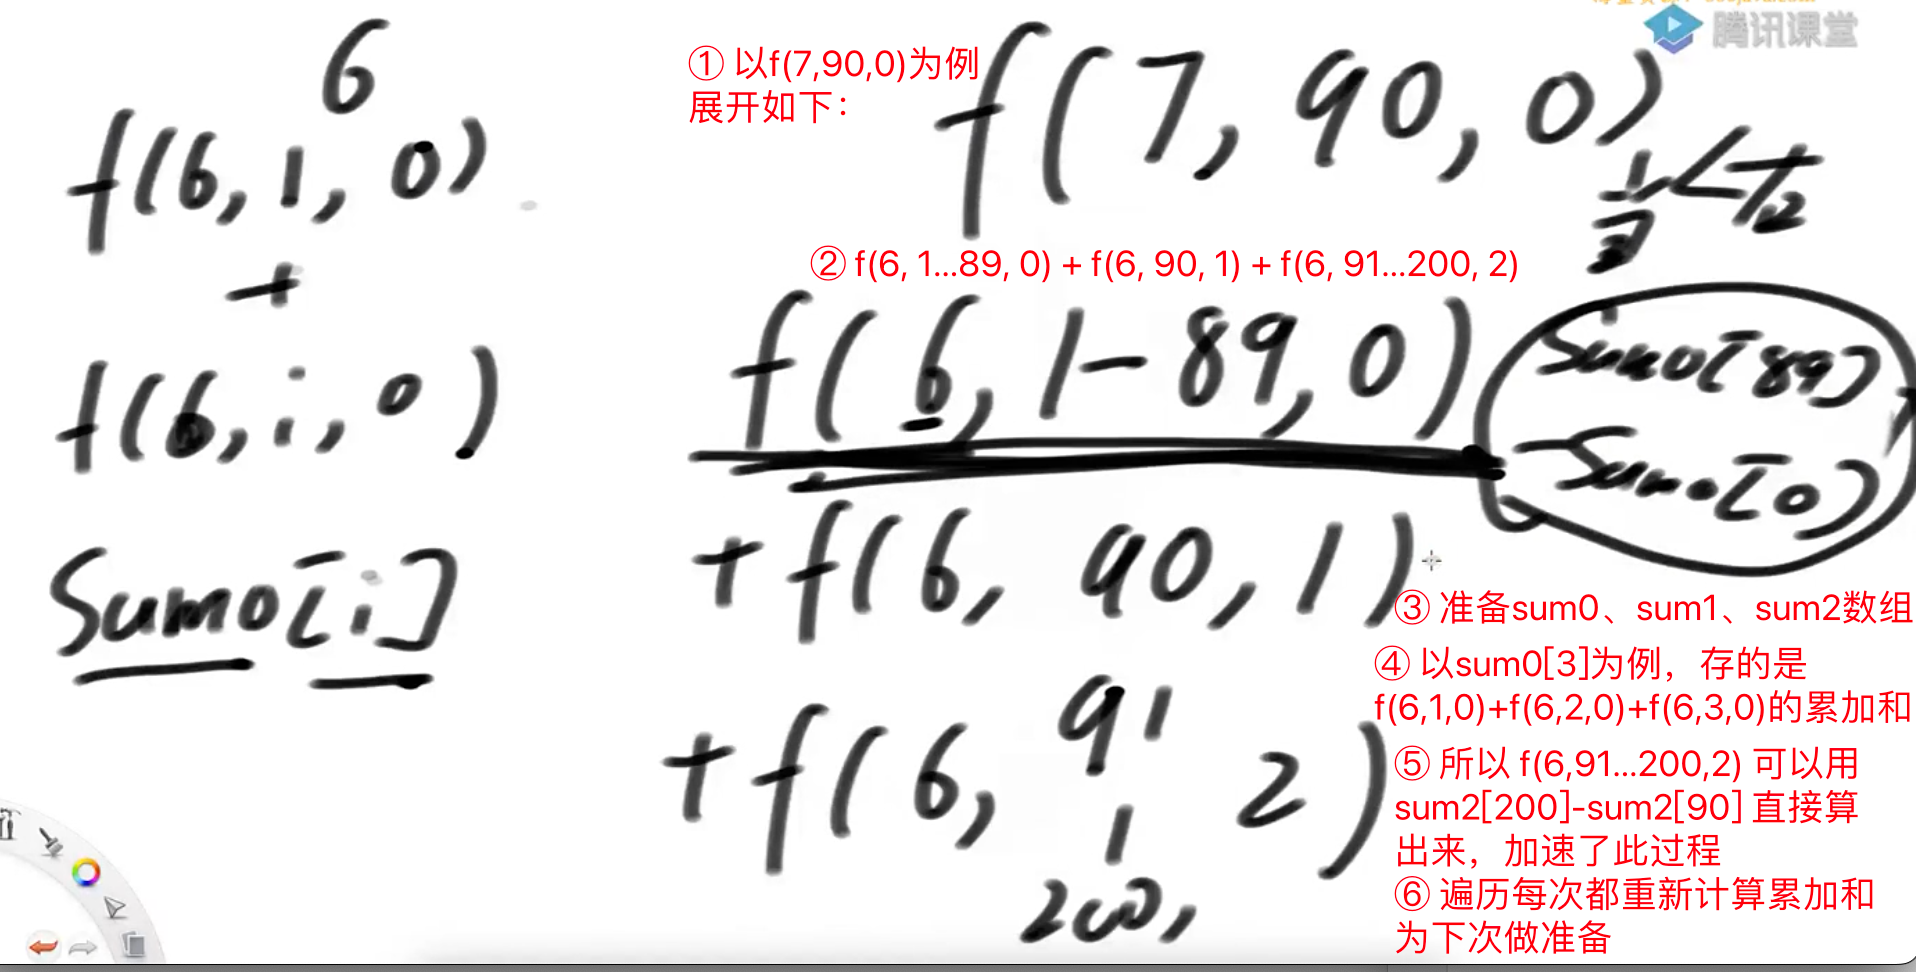 腾讯课堂
6
f(6, 1, 0)
+
f(6, i, 0)
Sum0[i]
① 以f(7,90,0)为例
展开如下：
f(7, 90, 0)
② f(6, 1...89, 0) + f(6, 90, 1) + f(6, 91...200, 2)
f(6, 1-89, 0)
Sum0[89]
-Sum0[0]
+f(6, 90, 1)
+f(6, 91
|
200, 2)
③ 准备sum0、sum1、sum2数组
④ 以sum0[3]为例，存的是
f(6,1,0)+f(6,2,0)+f(6,3,0)的累加和
⑤ 所以 f(6,91...200,2) 可以用
sum2[200]-sum2[90] 直接算
出来，加速了此过程
⑥ 遍历每次都重新计算累加和
为下次做准备